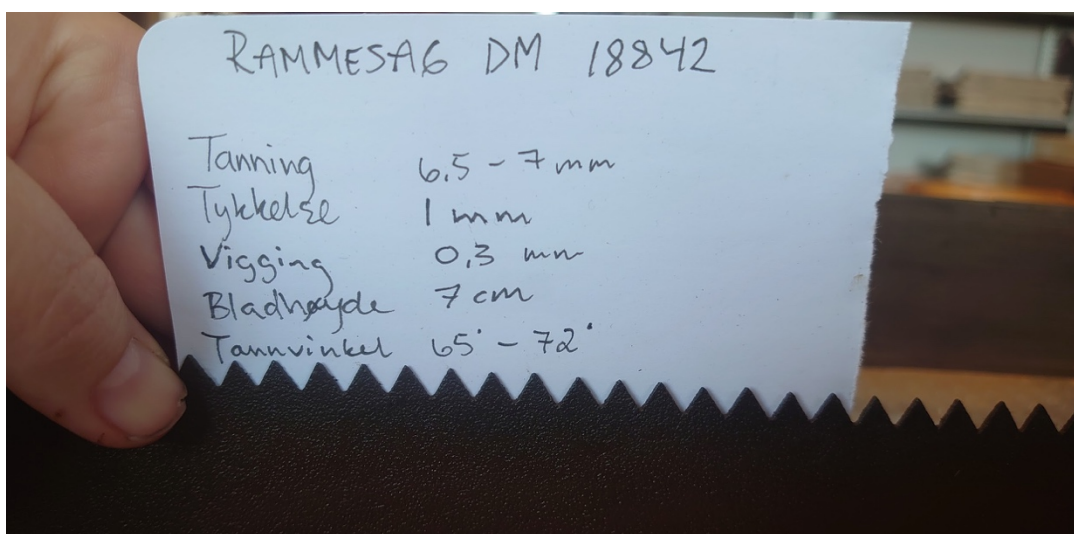 RAMMESAG DM 18842
Tanning 6,5 - 7 mm
Tykkelse 1 mm
Vigging 0,3 mm
Bladhøyde 7 cm
Tannvinkel 65° - 72°